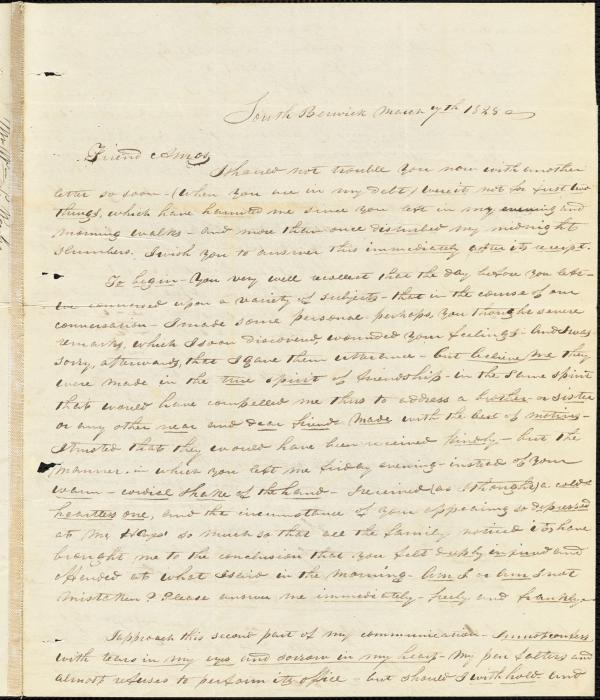 South Berwick March 7th 1828
Friend Amos
I should not trouble you now with another
letter so soon - (when you are in my debt) were it not for just two
things, which have haunted me since you left in my evening and
morning walks - and more than once disturbed my midnight
slumbers. I wish you to answer this immediately after its receipt.
To begin - You very well recollect that the day before you left -
we conversed upon a variety of subjects - that in the course of our
conversation - I made some personal perhaps, you thought severe
remarks, which I soon discovered, wounded your feelings - and I was
sorry, afterwards, that I gave them utterance - but believe me they
were made in the true spirit of friendship - in the same spirit
that would have compelled me thus to address a brother or sister
or any other near and dear friend made with the best of motives -
I trusted that they would have been received kindly - but the
manner, in which you left me friday evening - instead of your
warm - cordial shake of the hand - I received (as I thought) a cold
heartless one, and the circumstance of your appearing so depressed
at Mr so much so that all the family noticed it, have
brought me to the conclusion that you felt deeply injured and
offended at what I said in the morning - am I or am I not
mistaken? Please answer me immediately - freely and frankly -
I approach this second part of my communication - I must confess
with tears in my eyes and sorrow in my heart - My pen falters and
almost refuses to perform its office - but should I withhold and